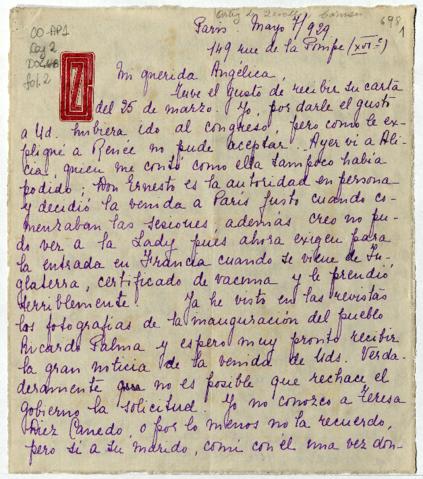 Ortiz de Zevallos, Carmen
698
1
CO-AP1
Caj 2
fol. 2
Paris Mayo 7/929
149 rue de la Pompe (XVIe)
Mi querida Angélica,
Tuve el gusto de recibir su carta
del 25 de marzo. Yo, por darle el gusto
a Ud. hubiera ido al congreso, pero como le ex-
pliqué a Renée no pude aceptar. Ayer vi a Ali-
cia, quien me contó como ella tampoco había
podido; Don Ernesto es la autoridad en persona
y decidió la venida a Paris justo cuando co-
menzaban las sesiones, además creo no pu-
do ver a la Lady pues ahora exigen para
la entrada en Francia cuando se viene de In-
glaterra, certificado de vacuna y le prendió
terriblemente. Ya he visto en las revistas
las fotografías de la inauguración del pueblo
Ricardo Palma y espero muy pronto recibir
la gran noticia de la venida de Uds. Verda-
deramente no es posible que rechace el
gobierno la solicitud. Yo no conozco a Teresa
Diez Canedo, o por lo menos no la recuerdo,
pero si a su marido, comi con él una vez don-